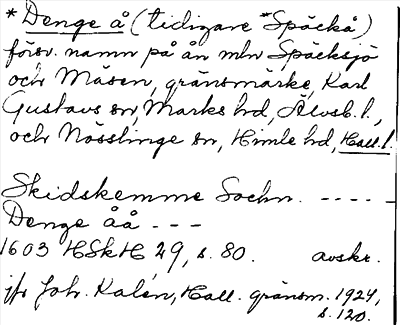 *Denge å (tidigare *Späckå)
försv. namn på ån mln Späcksjö
och Måsen, gränsmärke, Karl
Gustavs sn, Marks hd, Älvsb. l.,
och Nösslinge sn, Himle hd, Hall. l.
Skidskemme Sochn. - - - - -
Denge åå - - -
1603 HSkH 29, s. 80. avskr.
jfr Joh. Kalén, Hall. gränsm. 1924,
s. 120.